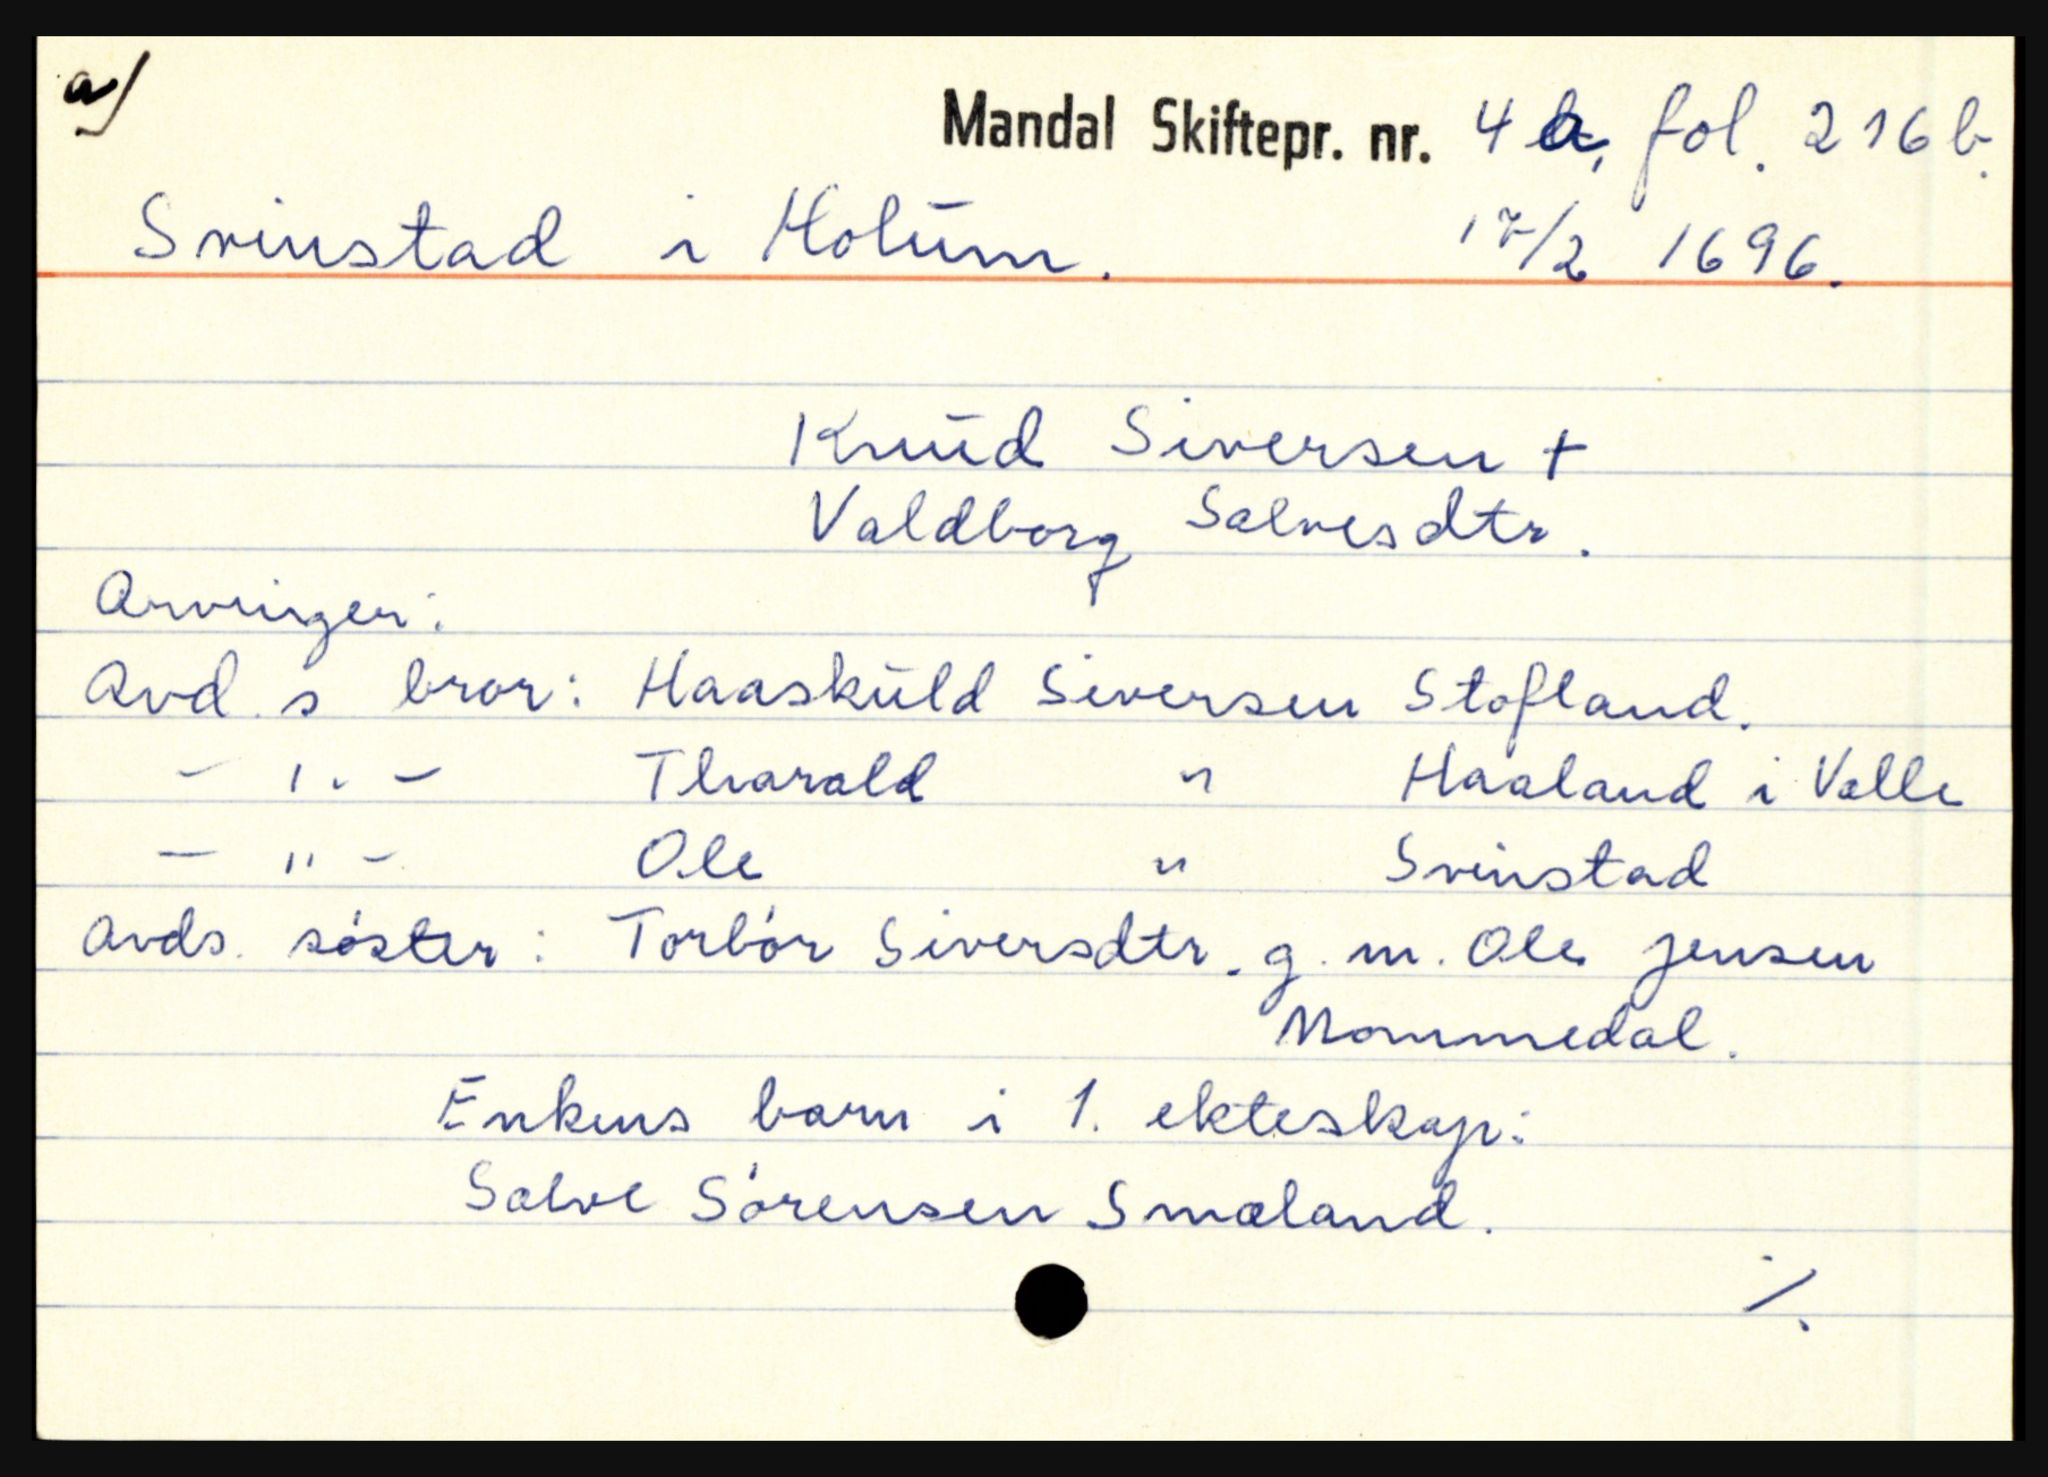 a)
Mandal Skiftepr. nr. 4 a, fol. 216 b.
Svinstad i Holum. 17/2 1696.
Knud Siversen +
Valdborg Salvesdtr.
Arvinger:
Avd. s bror: Haaskuld Siversen Stofland.
- " - Tharald " Haaland i Valle
- " - Ole " Svinstad
Avds. søster: Torbór Siversdtr. g. m. Ole Jensen
Mommedal.
Enkens barn i 1. ekteskap:
Salve Sörensen Smæland.